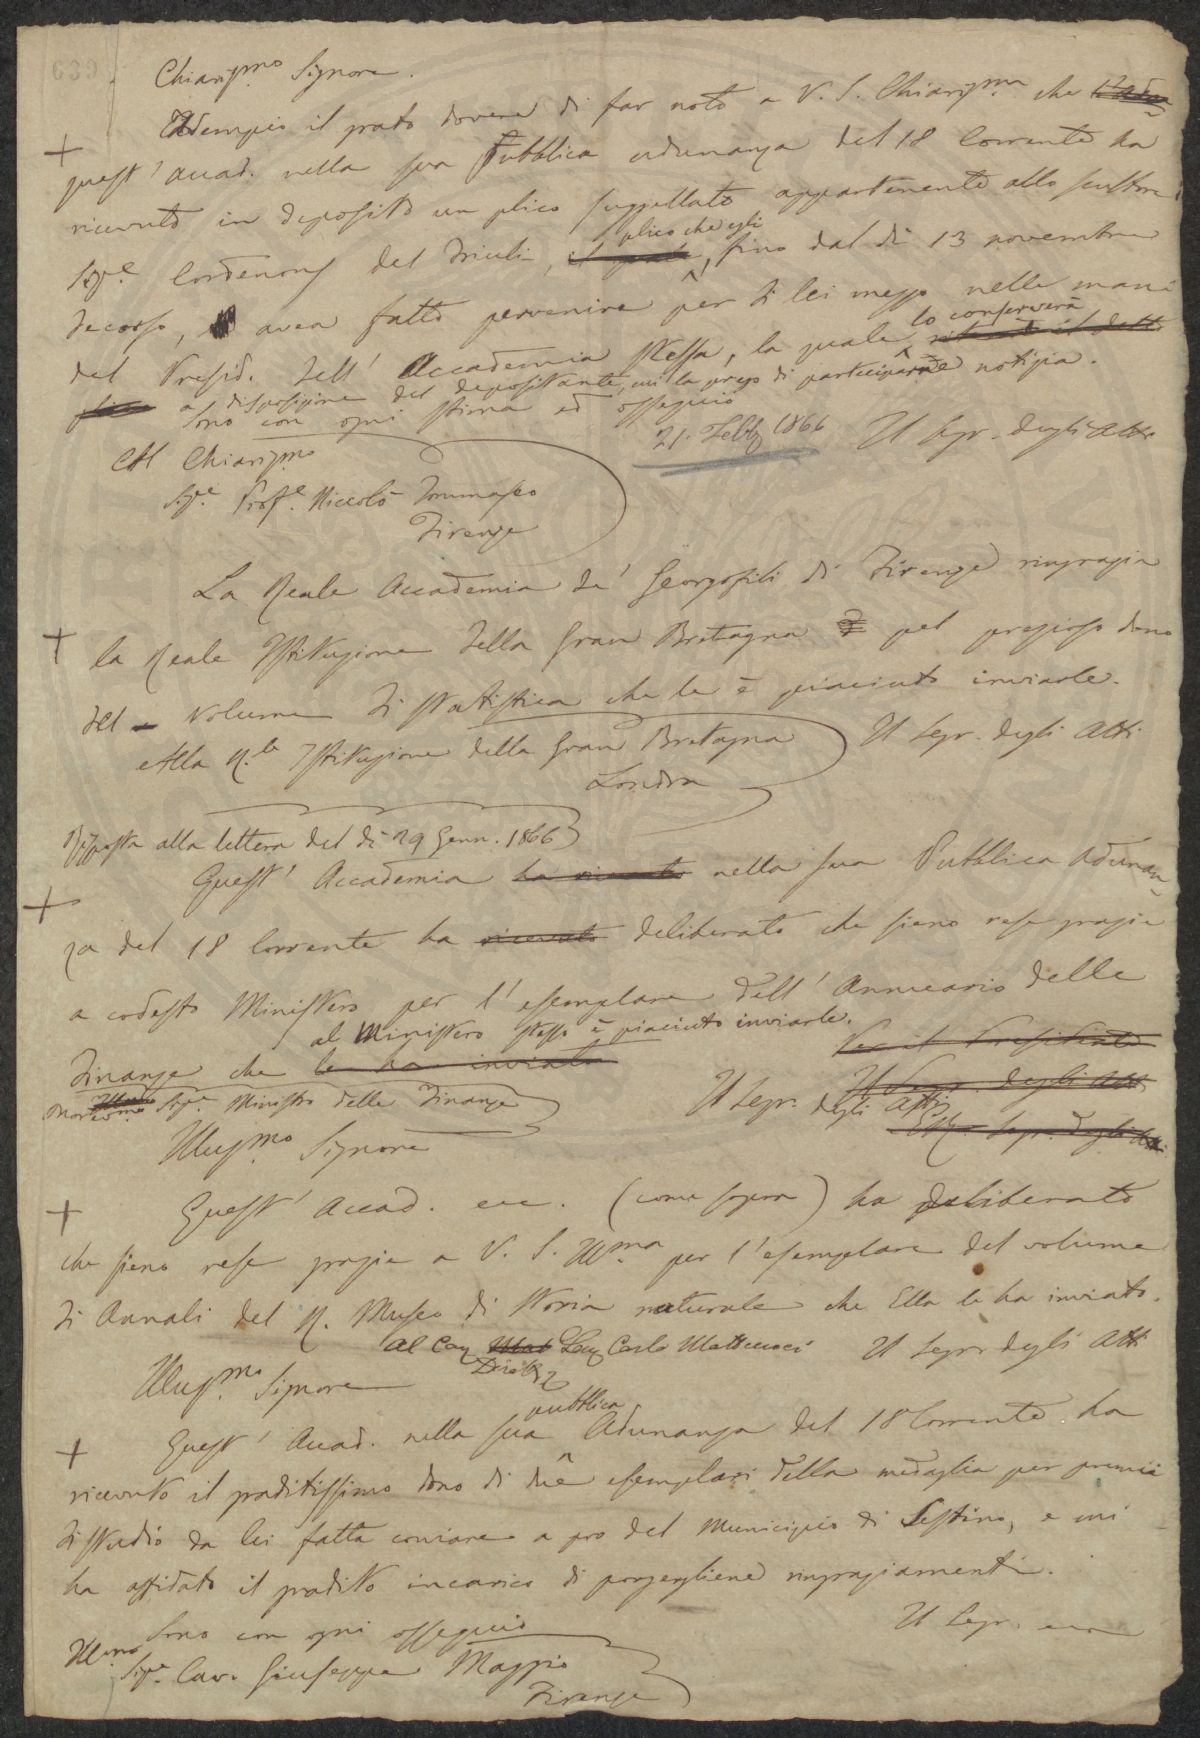 639
Chiariss.mo Signore.
Adempio il grato dovere di far noto a V. S. Chiariss.ma che
quest' Accad. nella sua Pubblica adunanza del 18 Corrente ha
ricevuto in deposito un plico suggellato appartenente allo scultore
Sig.e Cordenons del Friuli, plico che egli, fino dal dì 13 novembre
decorso, avea fatto pervenire per di lei mezzo nelle mani
del Presid. dell' Accademia stessa, la quale lo conserverà
a disposizione del depositante, mi la prego di participare notizia.
Sono con ogni stima ed ossequio
21. Febb. 1866 Il Segr. degli Atti
Al Chiariss.mo
Sig.e Prof.e Niccolò Tommaseo
Firenze
La Reale Accademia de' Georgofili di Firenze ringrazia
la Reale Istituzione della Gran Bretagna pel prezioso dono
del volume di statistica che le è piaciuto inviarle.
Alla R.le Istituzione della Gran Bretagna Il Segr. degli Atti
Londra
Risposta alla lettera del dì 29 Genn. 1866
Quest' Accademia ha ricevuto nella sua Pubblica Adunan-
za del 18 Corrente ha ricevuto deliberato che sieno rese grazie
a codesto Ministero per l' esemplare dell' Annuario delle
al Ministero stesso è piaciuto inviarle.
Finanze che le ha inviato Per il Presidente
Il Segr. degli Atti
Sig.e Ministro delle Finanze Il Segr. degli Atti
Illus.mo Signore
Quest' Accad. ecc. (come sopra) ha deliberato
che sieno rese grazie a V. S. Ill.ma per l' esemplare del volume
di Annali del R. Museo di Storia naturale che Ella le ha inviato.
Al Cav. Carlo Matteucci Il Segr. degli Atti
Illus.mo Signore
pubblica
Quest' Accad. nella sua Adunanza del 18 Corrente ha
ricevuto il graditissimo dono di due esemplari della medaglia per premii
di studio da lei fatta coniare a pro del Municipio di Sestino, e mi
ha affidato il gradito incarico di porgergliene ringraziamenti.
Sono con ogni ossequio Il Segr.
Ill.mo
Sig.e Cav. Giuseppe Maggio
Firenze